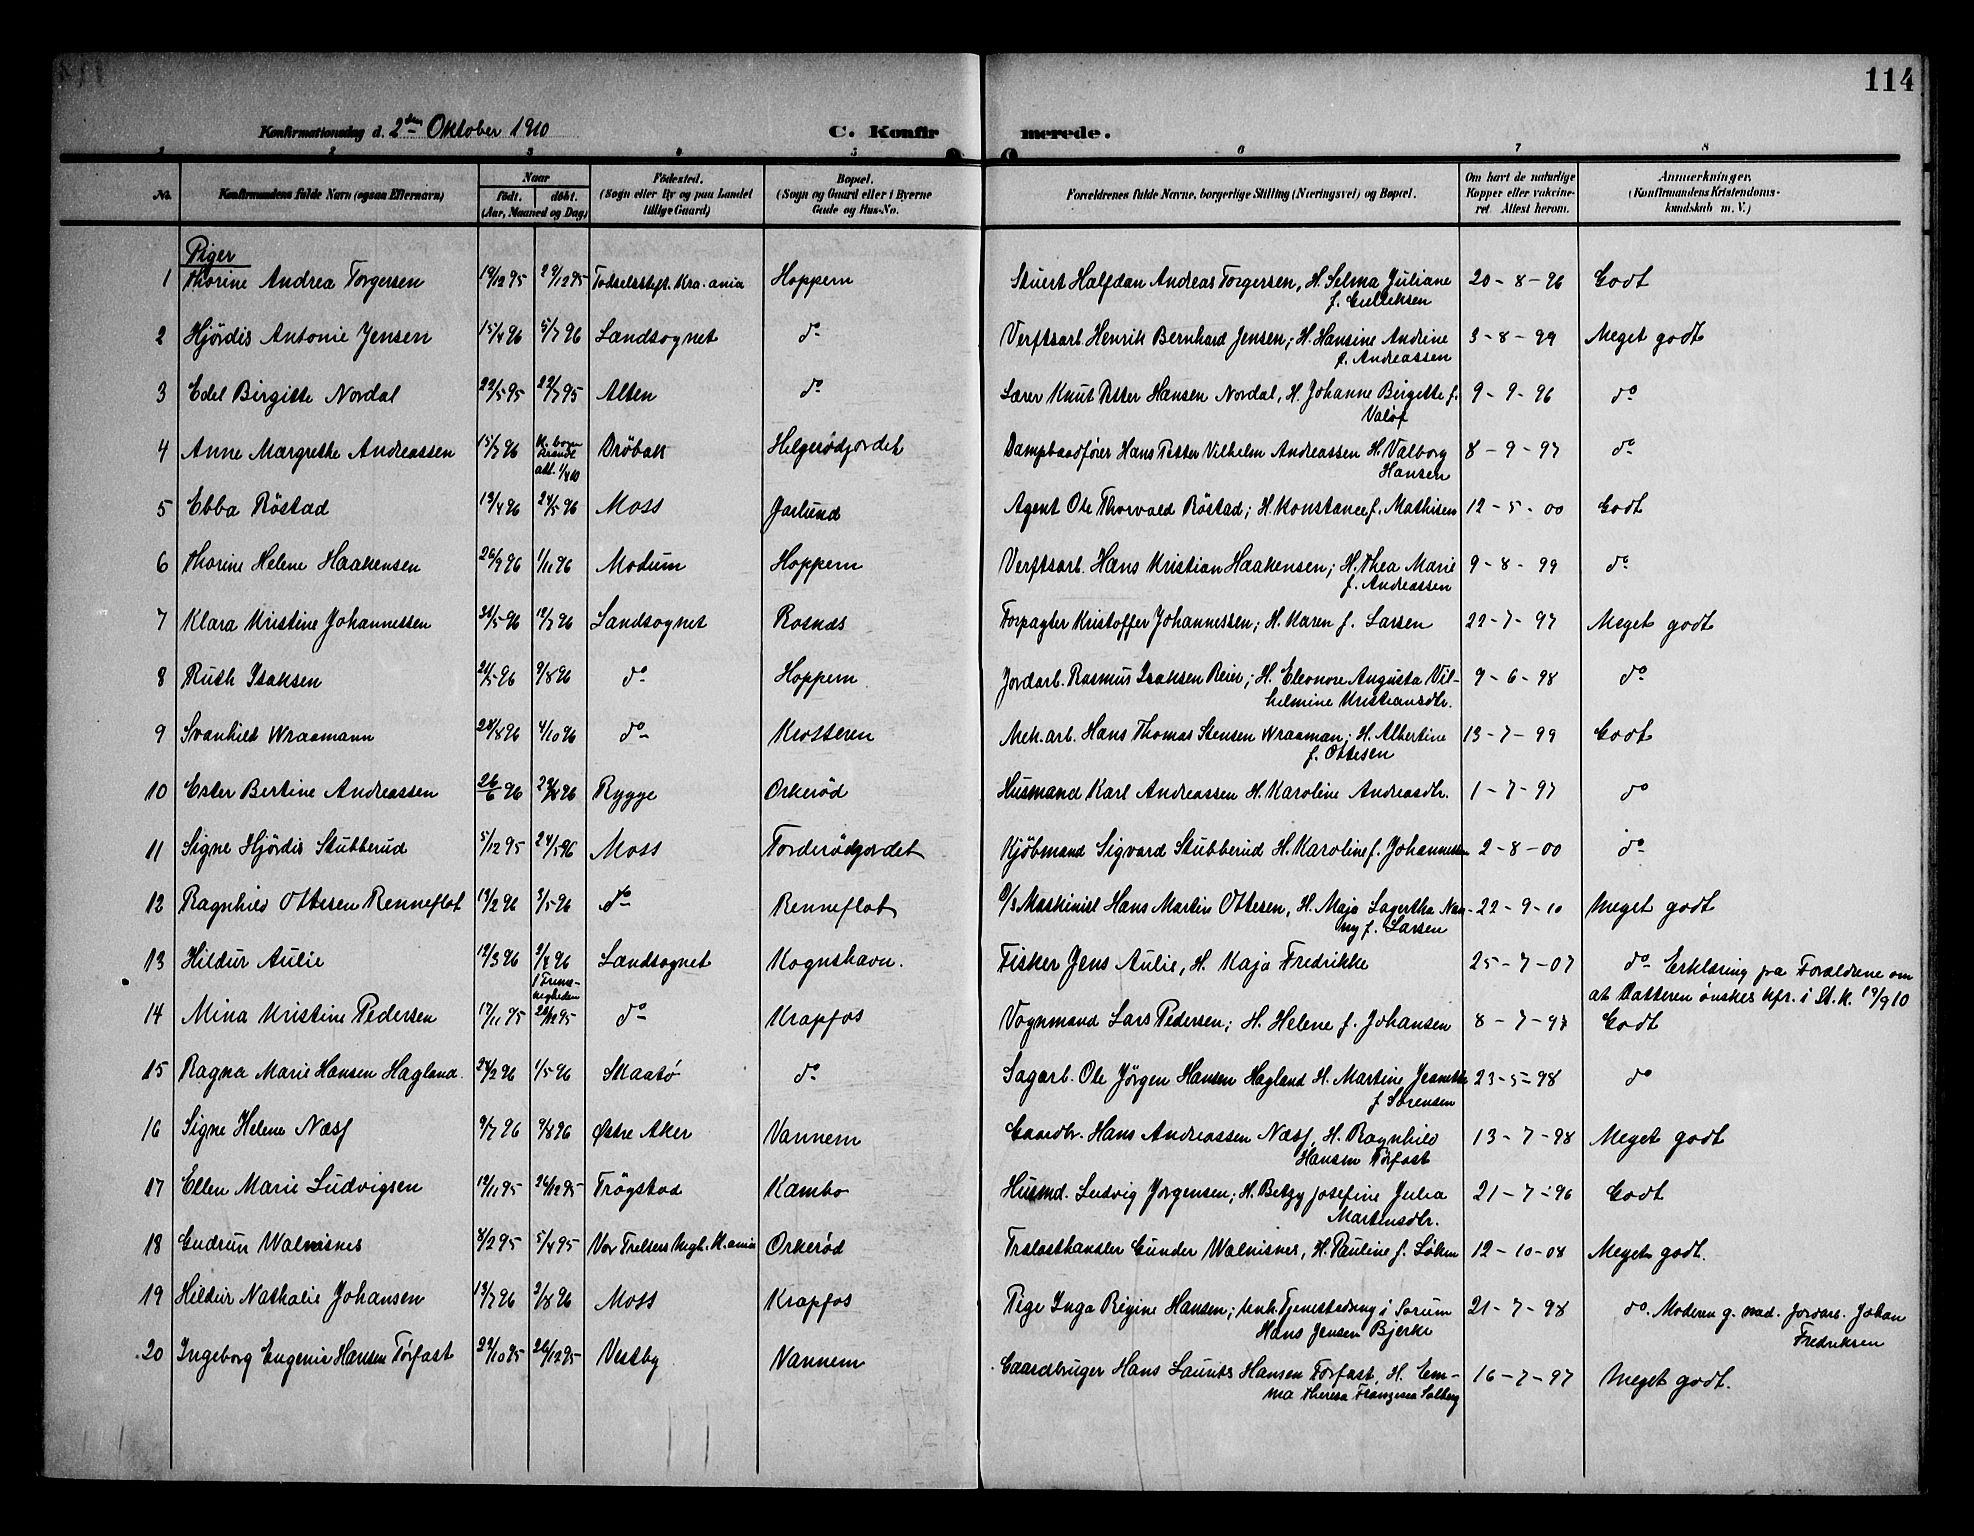 114
Konfirmationsdag d. 2den Oktober 1910 C. Konfirmerede.
1 2 3 4 5 6 7 8
No. Konfirmandens fulde Navn (ogsaa Efternavn) Naar født. døbt. (Aar, Maaned og Dag) Fødested. (Sogn eller By og paa Landet tillige Gaard) Bopæl. (Sogn og Gaard eller i Byerne Gade og Hus-No. Forældrenes fulde Navne, borgerlige Stilling (Næringsvei) og Bopæl. Om havt de naturlige Kopper eller vakcineret. Attest herom. Anmærkninger. (Konfirmandens Kristendomskundskab m. V.)
Piger
1 Thorine Andrea Torgersen 19/12 95 29/12 95 Fødselsstift. Kra.ania Hoppern Stuert Halfdan Andreas Torgersen, H. Selma Juliane 20-8-96 Godt
f. Gulliksen
2 Hjördis Antonie Jensen 15/4 96 5/7 96 Landsognet do Verftsarb. Henrik Bernhard Jensen; H. Hansine Andrine 3-8-99 Meget godt
f. Andreassen
3 Edel Birgitte Nordal 22/5 95 22/7 95 Alten do Lærer Knut Petter Hansen Nordal, H. Johanne Birgitte f. 9-9-96 do
Valöf
4 Anne Margrethe Andreassen 15/7 96 Dröbak Helgerödjordet Dampbaadfører Hans Petter Vilhelm Andreassen H. Valborg 8-9-97 do
att. 1/4 10 Hansen
5 Ebba Röstad 13/4 96 24/5 96 Moss Jarlund Agent Ole Thorvald Röstad; H. Konstance f. Mathisen 12-5-00 Godt
6 Thorine Helene Haakensen 26/9 96 1/11 96 Modum Hoppern Verftsarb. Hans Kristian Haakensen; H. Thea Marie 9-8-99 do
f. Andreassen
7 Klara Kristine Johannessen 31/5 96 19/7 96 Landsognet Rosnæs Forpagter Kristoffer Johannessen; H. Karen f. Larsen 22-7-97 Meget godt
8 Ruth Isaksen 21/5 96 9/8 96 do Hoppern Jordarb. Rasmus Isaksen Reier; H. Eleonore Augusta Vil- 9-6-98 do
helmine Kristiansdtr.
9 Svanhild Wraamann 28/8 96 4/10 96 do Krosseren Mek.arb. Hans Thomas Stensen Wraaman; H. Albertine 13-7-99 Godt
f. Ottesen
10 Ester Bertine Andreassen 26/6 96 Rygge Orkerød Husmand Karl Andreassen H. Karoline Andreasdtr. 1-7-97 do
11 Signe Hjördis Stubberud 5/12 95 24/5 96 Moss Torderödjordet Kjøbmand Sigvard Stubberud H. Karoline f. Johannessen 2-8-00 do
12 Ragnhild Ottesen Renneflot 19/2 96 3/5 96 do Renneflot Maskinist Hans Martin Ottesen, H. Maja Lagertha Nan- 22-9-10 Meget godt
ny f. Larsen
13 Hildur Aulie 19/3 96 2/4 96 Landsognet Kognshavn. Fisker Jens Aulie, H. Kaja Fredrikke 25-7-07 do Erklæring fra Forældrene om
at Datteren ønskes kfr. i St. K. 19/9 10
14 Mina Kristine Pedersen 17/11 95 26/12 95 do Krapfos Vognmand Lars Pedersen; H. Helene f. Johansen 8-7-97 Godt
15 Ragna Marie Hansen Hagland. 24/2 96 1/5 96 Skaatö do Sagarb. Ole Jörgen Hansen Hagland H. Martine Jeanette 23-5-98 do
f. Sörensen
16 Signe Helene Næss 9/7 96 9/8 96 Østre Aker Vannem Gaardbr. Hans Andreassen Næss, H. Ragnhild 13-7-98 Meget godt
Hansen Tørfast
17 Ellen Marie Ludvigsen 19/11 95 26/12 95 Trögstad Kambo Husmd. Ludvig Jörgensen; H. Betzy Josefine Julia 21-7-96 Godt
Martinsdtr.
18 Gudrun Walnisnes 8/2 95 5/4 95 Vor Frelsers Kristiania Orkerød Trælasthandler Gunder Walnisnes, H. Pauline f. Löken 12-10-08 Meget godt.
19 Hildur Nathalie Johansen 13/7 96 2/8 96 Moss Krapfos Pige Inga Regine Hansen; Tjenestedreng i Sörum 21-7-98 do. Moderen g. med. Jordarb. Johan
Hans Jensen Bjerke Fredriksen
20 Ingeborg Eugenie Hansen Tørfast 22/10 95 26/12 95 Vestby Vannem Gaardbruger Hans Laurits Hansen Tørfast, H. Em- 16-7-97 Meget godt.
ma Theresa Franzisca Solberg